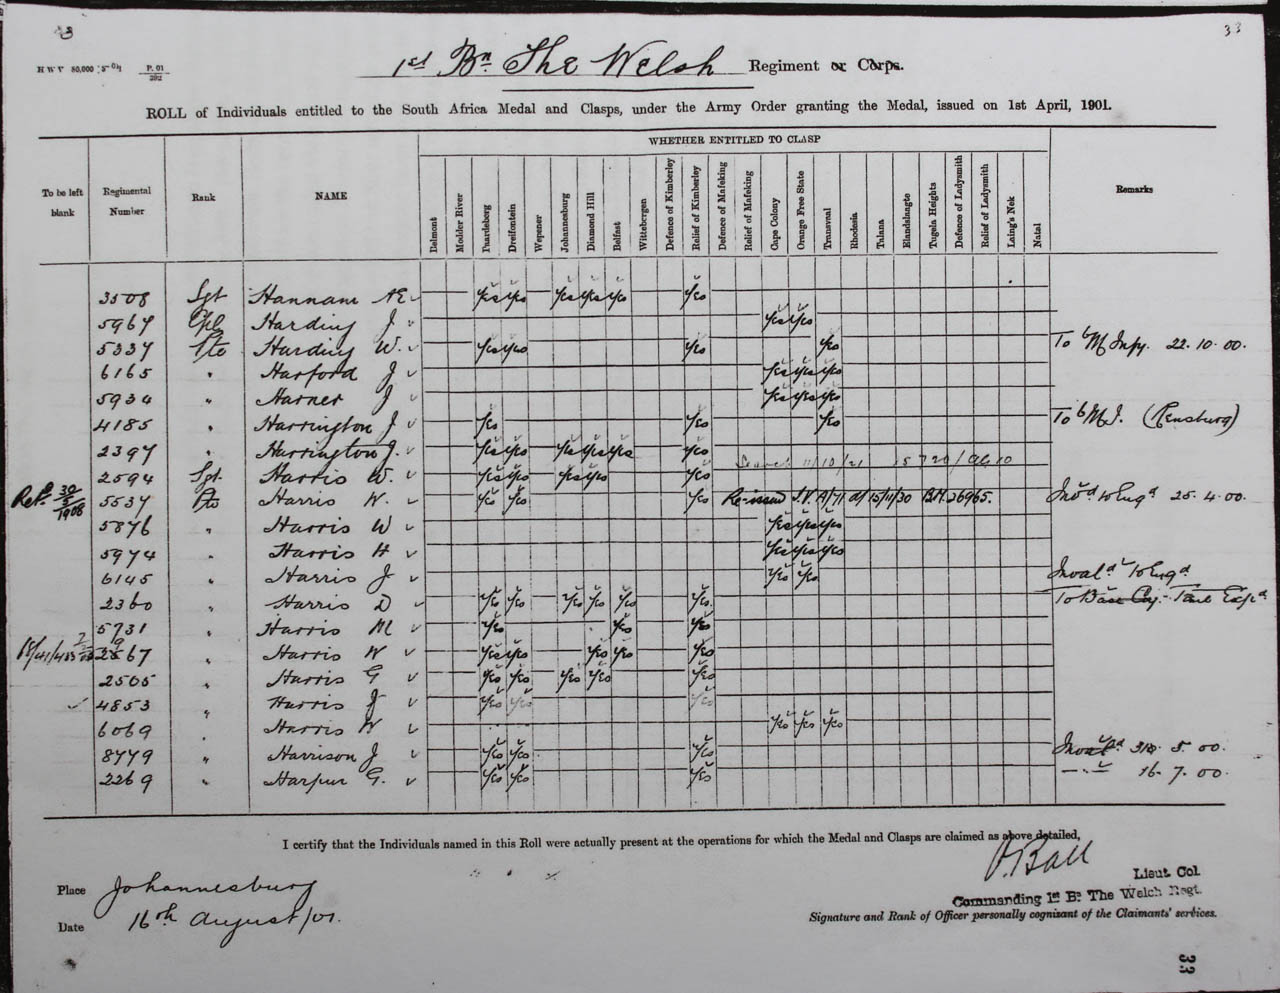 33
33
H W V 80,000 5-01 P. 01/292
1st Bn The Welsh Regiment or Corps.
ROLL of Individuals entitled to the South Africa Medal and Clasps, under the Army Order granting the Medal, issued on 1st April, 1901.
WHETHER ENTITLED TO CLASP
To be left blank Regimental Number Rank NAME Belmont Modder River Paardeberg Dreifontein Wepener Johannesburg Diamond Hill Belfast Wittebergen Defence of Kimberley Relief of Kimberley Defence of Mafeking Relief of Mafeking Cape Colony Orange Free State Transvaal Rhodesia Talana Elandslaagte Tugela Heights Defence of Ladysmith Relief of Ladysmith Laing's Nek Natal Remarks
3508 Sgt Hannam AE Yes Yes Yes Yes Yes Yes
5967 Cpl Harding J Yes Yes
5337 Pte Harding W. Yes Yes Yes Yes To 6 M Infy. 22.10.00.
6165 " Harford J Yes Yes Yes
5934 " Harner J Yes Yes Yes
4185 " Harrington J Yes Yes Yes To 6 M.I. (Rensburg)
2397 " Harrington J. Yes Yes Yes Yes Yes Yes
11/10/21
2594 Sgt. Harris W. Yes Yes Yes Yes Yes
5537 Pte Harris W. Yes Yes Yes Re-issued I.V. A/71 d/ 15/11/30 B.M. 26965. Invd to Engd 25.4.00.
5876 " Harris W Yes Yes Yes
5974 " Harris H Yes Yes Yes
6145 " Harris J Yes Yes Invald to Engd
2360 " Harris D Yes Yes Yes Yes Yes Yes To Base
5731 " Harris M Yes Yes Yes
2567 " Harris W Yes Yes Yes Yes Yes
2505 " Harris G Yes Yes Yes Yes Yes
4853 " Harris J Yes Yes Yes
6069 " Harris W Yes Yes Yes
8779 " Harrison J Yes Yes Yes Invald 5.00.
2269 " Harpur G. Yes Yes Yes — " — 16.7.00.
I certify that the Individuals named in this Roll were actually present at the operations for which the Medal and Clasps are claimed as above detailed,
Ball
Lieut Col
Place Johannesburg
Commanding 1st Bn The Welch Regt.
Date 16th August/01.
Signature and Rank of Officer personally cognizant of the Claimants' services.
33